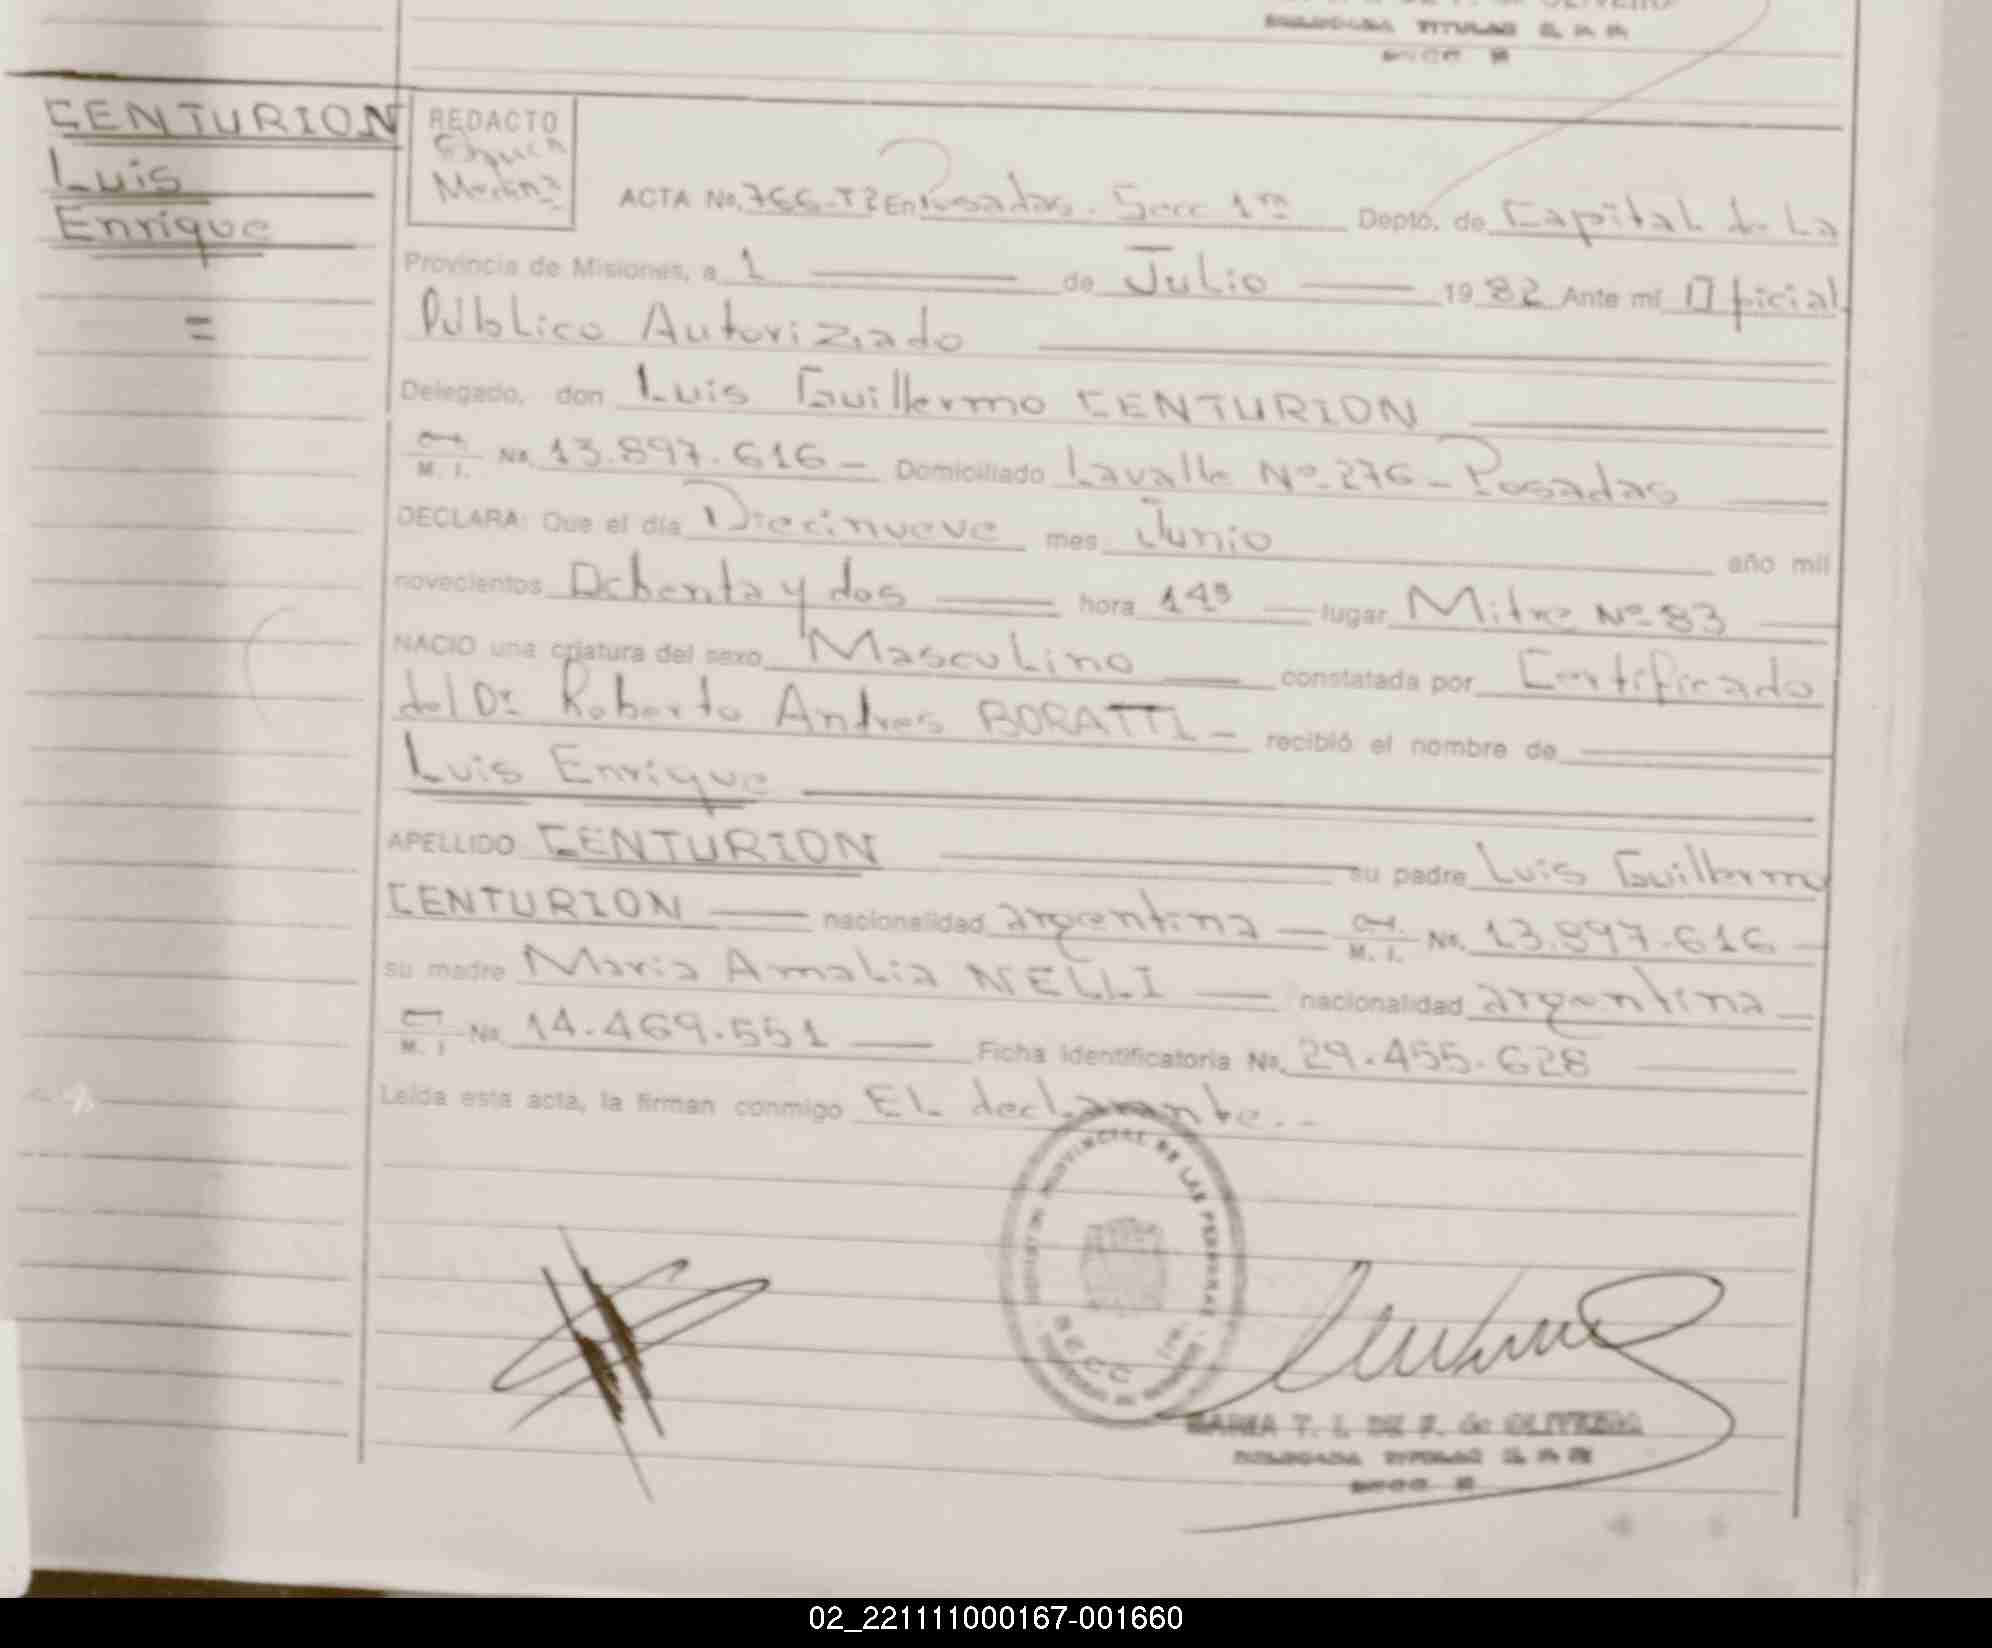 CENTURION
Luis
Enrique
=
REDACTO
Medina
ACTA No. 766-T2 En Posadas. Secc 1ra Depto. de Capital de La
Provincia de Misiones, a 1 de Julio 1982 Ante mí Oficial
Público Autorizado
Delegado, don Luis Guillermo CENTURION
M. I. No. 13.897.616 - Domiciliado Lavalle Nº 276 - Posadas
DECLARA: Que el día Diecinueve mes Junio año mil
novecientos Ochenta y dos hora 14 lugar Mitre Nº 83
NACIO una criatura del sexo Masculino constatada por Certificado
del Dr Roberto Andres BORATTI - recibió el nombre de
Luis Enrique
APELLIDO CENTURION su padre Luis Guillermo
CENTURION nacionalidad argentina M. I. No. 13.897.616
su madre Maria Amalia NELLI nacionalidad argentina
M. I No. 14.469.551 Ficha Identificatoria No. 29.455.628
Leída esta acta, la firman conmigo EL declarante.-
PROVINCIAL DE LAS PERSONAS
SECC 1ra.
MARIA T. L. DE F. de OLIVEIRA
DELEGADA TITULAR
02_221111000167-001660